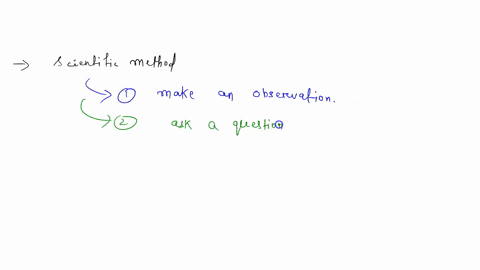 → scientific method
① make an observation.
② ask a question